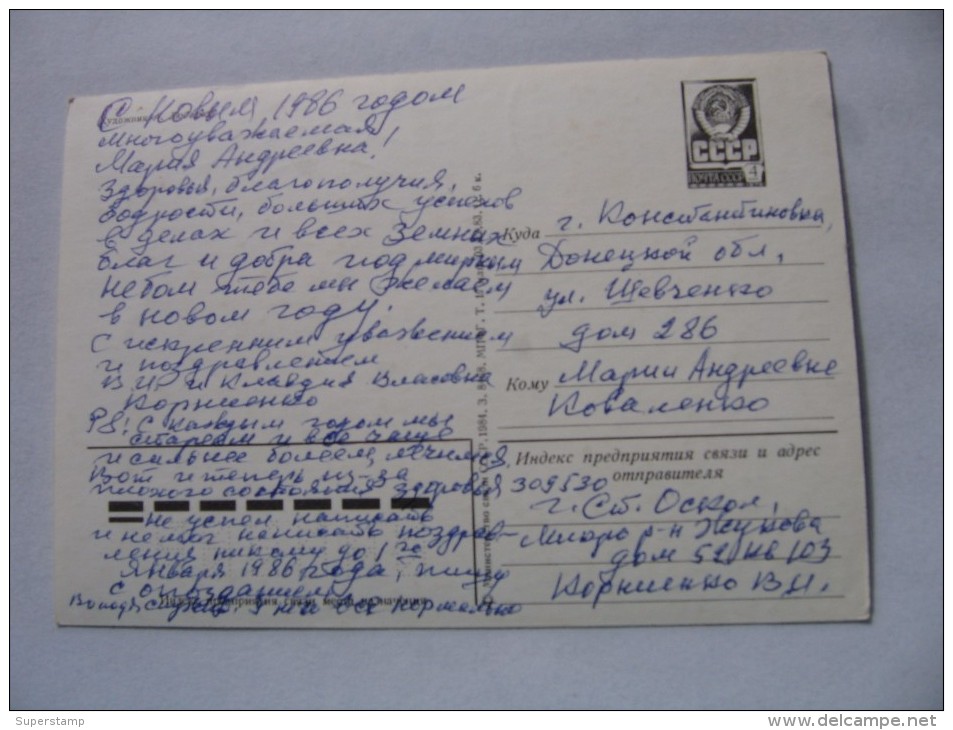 С Новым 1986 годом
многоуважаемая
Мария Андреевна!
Здоровья, благополучия,
бодрости, больших успехов
в делах и всех земных
благ и добра под мирным
небом тебе мы желаем
в новом году.
С искренним уважением
и поздравлением
В.И. и Клавдия Власовна
Корниенко
PS! С каждым годом мы
стареем и все чаще
и сильнее болеем, лечимся,
Вот и теперь из-за
плохого состояния здоровья
не успел написать
и не мог написать поздрав-
ления никому до 1го
января 1986 года, пишу
с опозданием.
У них все нормально
СССР
ПОЧТА СССР 4
Куда г. Константиновка,
Донецкой обл,
ул. Шевченко
дом 286
Кому Марии Андреевне
Коваленко
Индекс предприятия связи и адрес
отправителя
309530
г. Ст. Оскол,
Микро р-н Жукова
дом 52 кв 103
Корниенко В.И.
Superstamp
www.delcampe.net